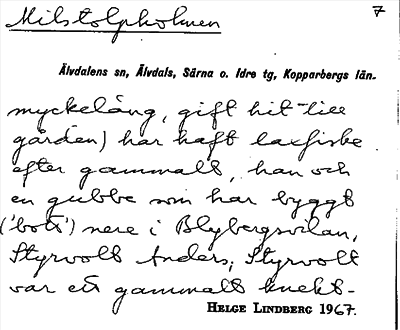 Milstolpholmen
7
Älvdalens sn, Älvdals, Särna o. Idre tg, Kopparbergs län.
myckelång, gift hit till
gården) har haft laxfiske
efter gammalt, han och
en gubbe som har byggt
('bott') nere i Blybergsvilan,
Styrvolt Anders; Styrvolt
var ett gammalt knekt-
HELGE LINDBERG 1967.